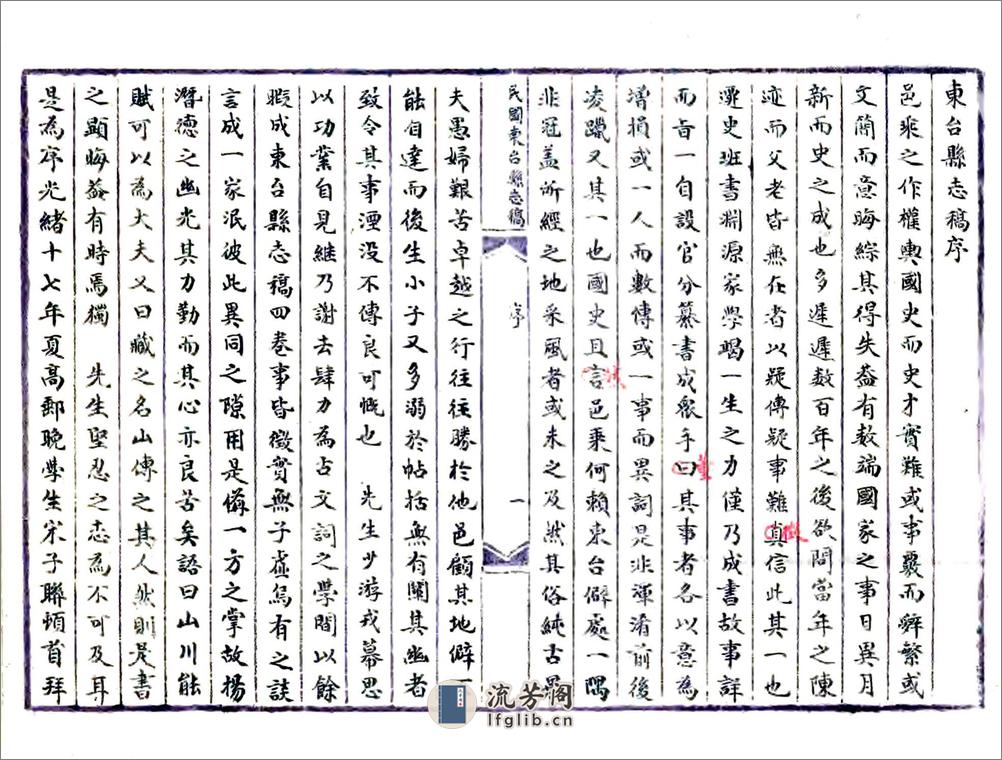 東台縣志稿序
邑乘之作權輿國史而史才實難或事覈而辭繁或
文簡而意晦綜其得失葢有数端國家之事日異月
新而史之成也多遲遲数百年之後欲問當年之陳
迹而父老皆無在者以疑傳疑事難真信此其一也
徵
遷史班書淵源家學竭一生之力僅乃成書故事詳
而旨一自設官分纂書成衆手曰其事者各以意為
董
增損或一人而數傳或一事而異詞是非渾淆前後
凌躐又其一也國史且言邑乘何賴東台僻處一隅
然
非冠盖所經之地采風者或未之及然其俗純古
民國東台縣志稿
序
一
夫愚婦艱苦卓越之行往往勝於他邑顧其地僻
能自達而後生小子又多溺於帖括無有闡其幽者
致令其事湮没不傳良可慨也 先生少游戎幕思
以功業自見継乃謝去肆力為古文詞之學閒以餘
暇成東台縣志稿四卷事皆徵實無子虚烏有之談
言成一家泯彼此異同之隙用是備一方之掌故揚
潛德之幽光其力勤而其心亦良苦矣語曰山川能
賦可以為大夫又曰藏之名山傳之其人然則是書
之顯晦葢有時焉獨 先生堅忍之志為不可及耳
是為序光緒十七年夏高郵晚學生宋子聯頓首拜
流芳阁
lfglib.cn